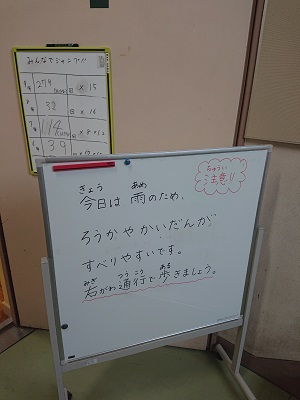 みんなでジャンプ!!
274
× 15
32
× 16
39
ちゅうい
注意!!
きょう あめ
今日は 雨のため、
ろうかやかいだんが
すべりやすいです。
みぎ つうこう ある
右がわ通行で歩きましょう。